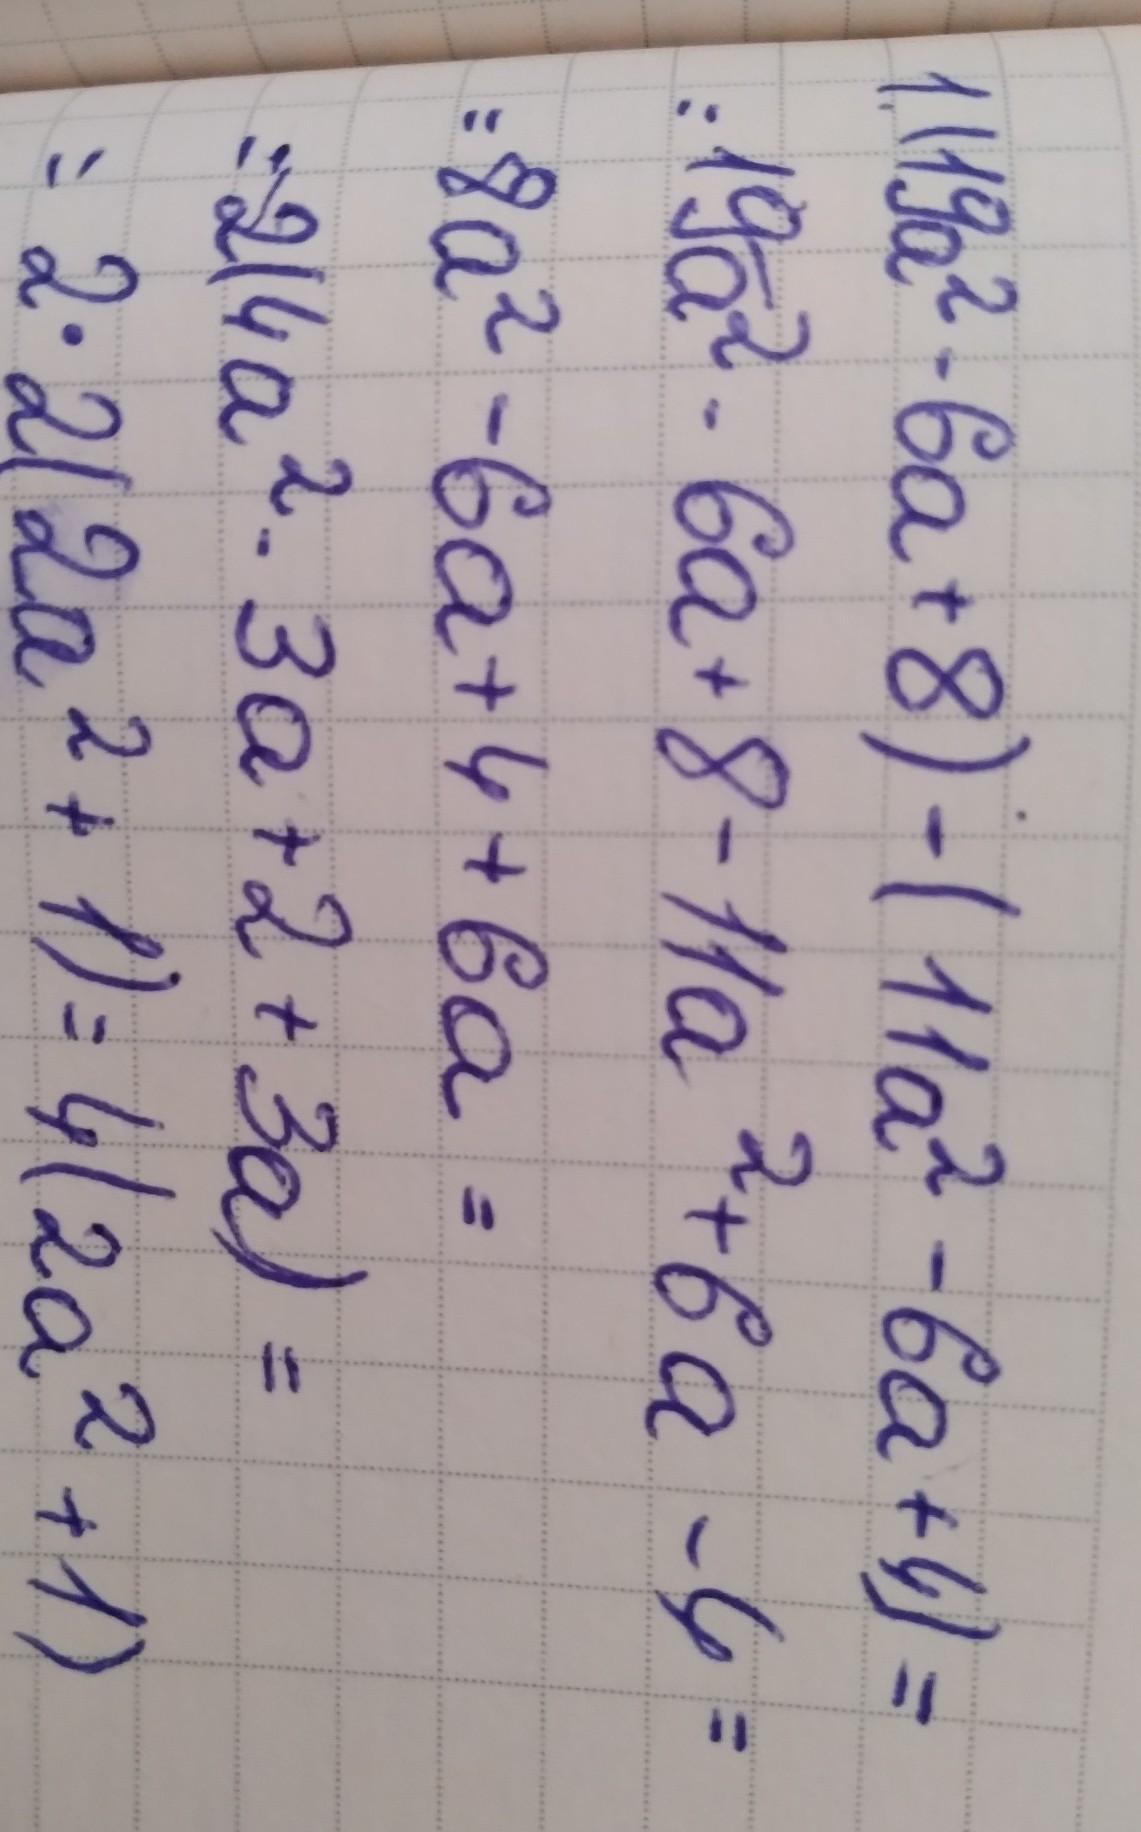 1. (19a² - 6a + 8) - (11a² - 6a + 4) =
= 19a² - 6a + 8 - 11a² + 6a - 4 =
= 8a² - 6a + 4 + 6a =
= 2(4a² - 3a + 2 + 3a) =
= 2 · 2(2a² + 1) = 4(2a² + 1)